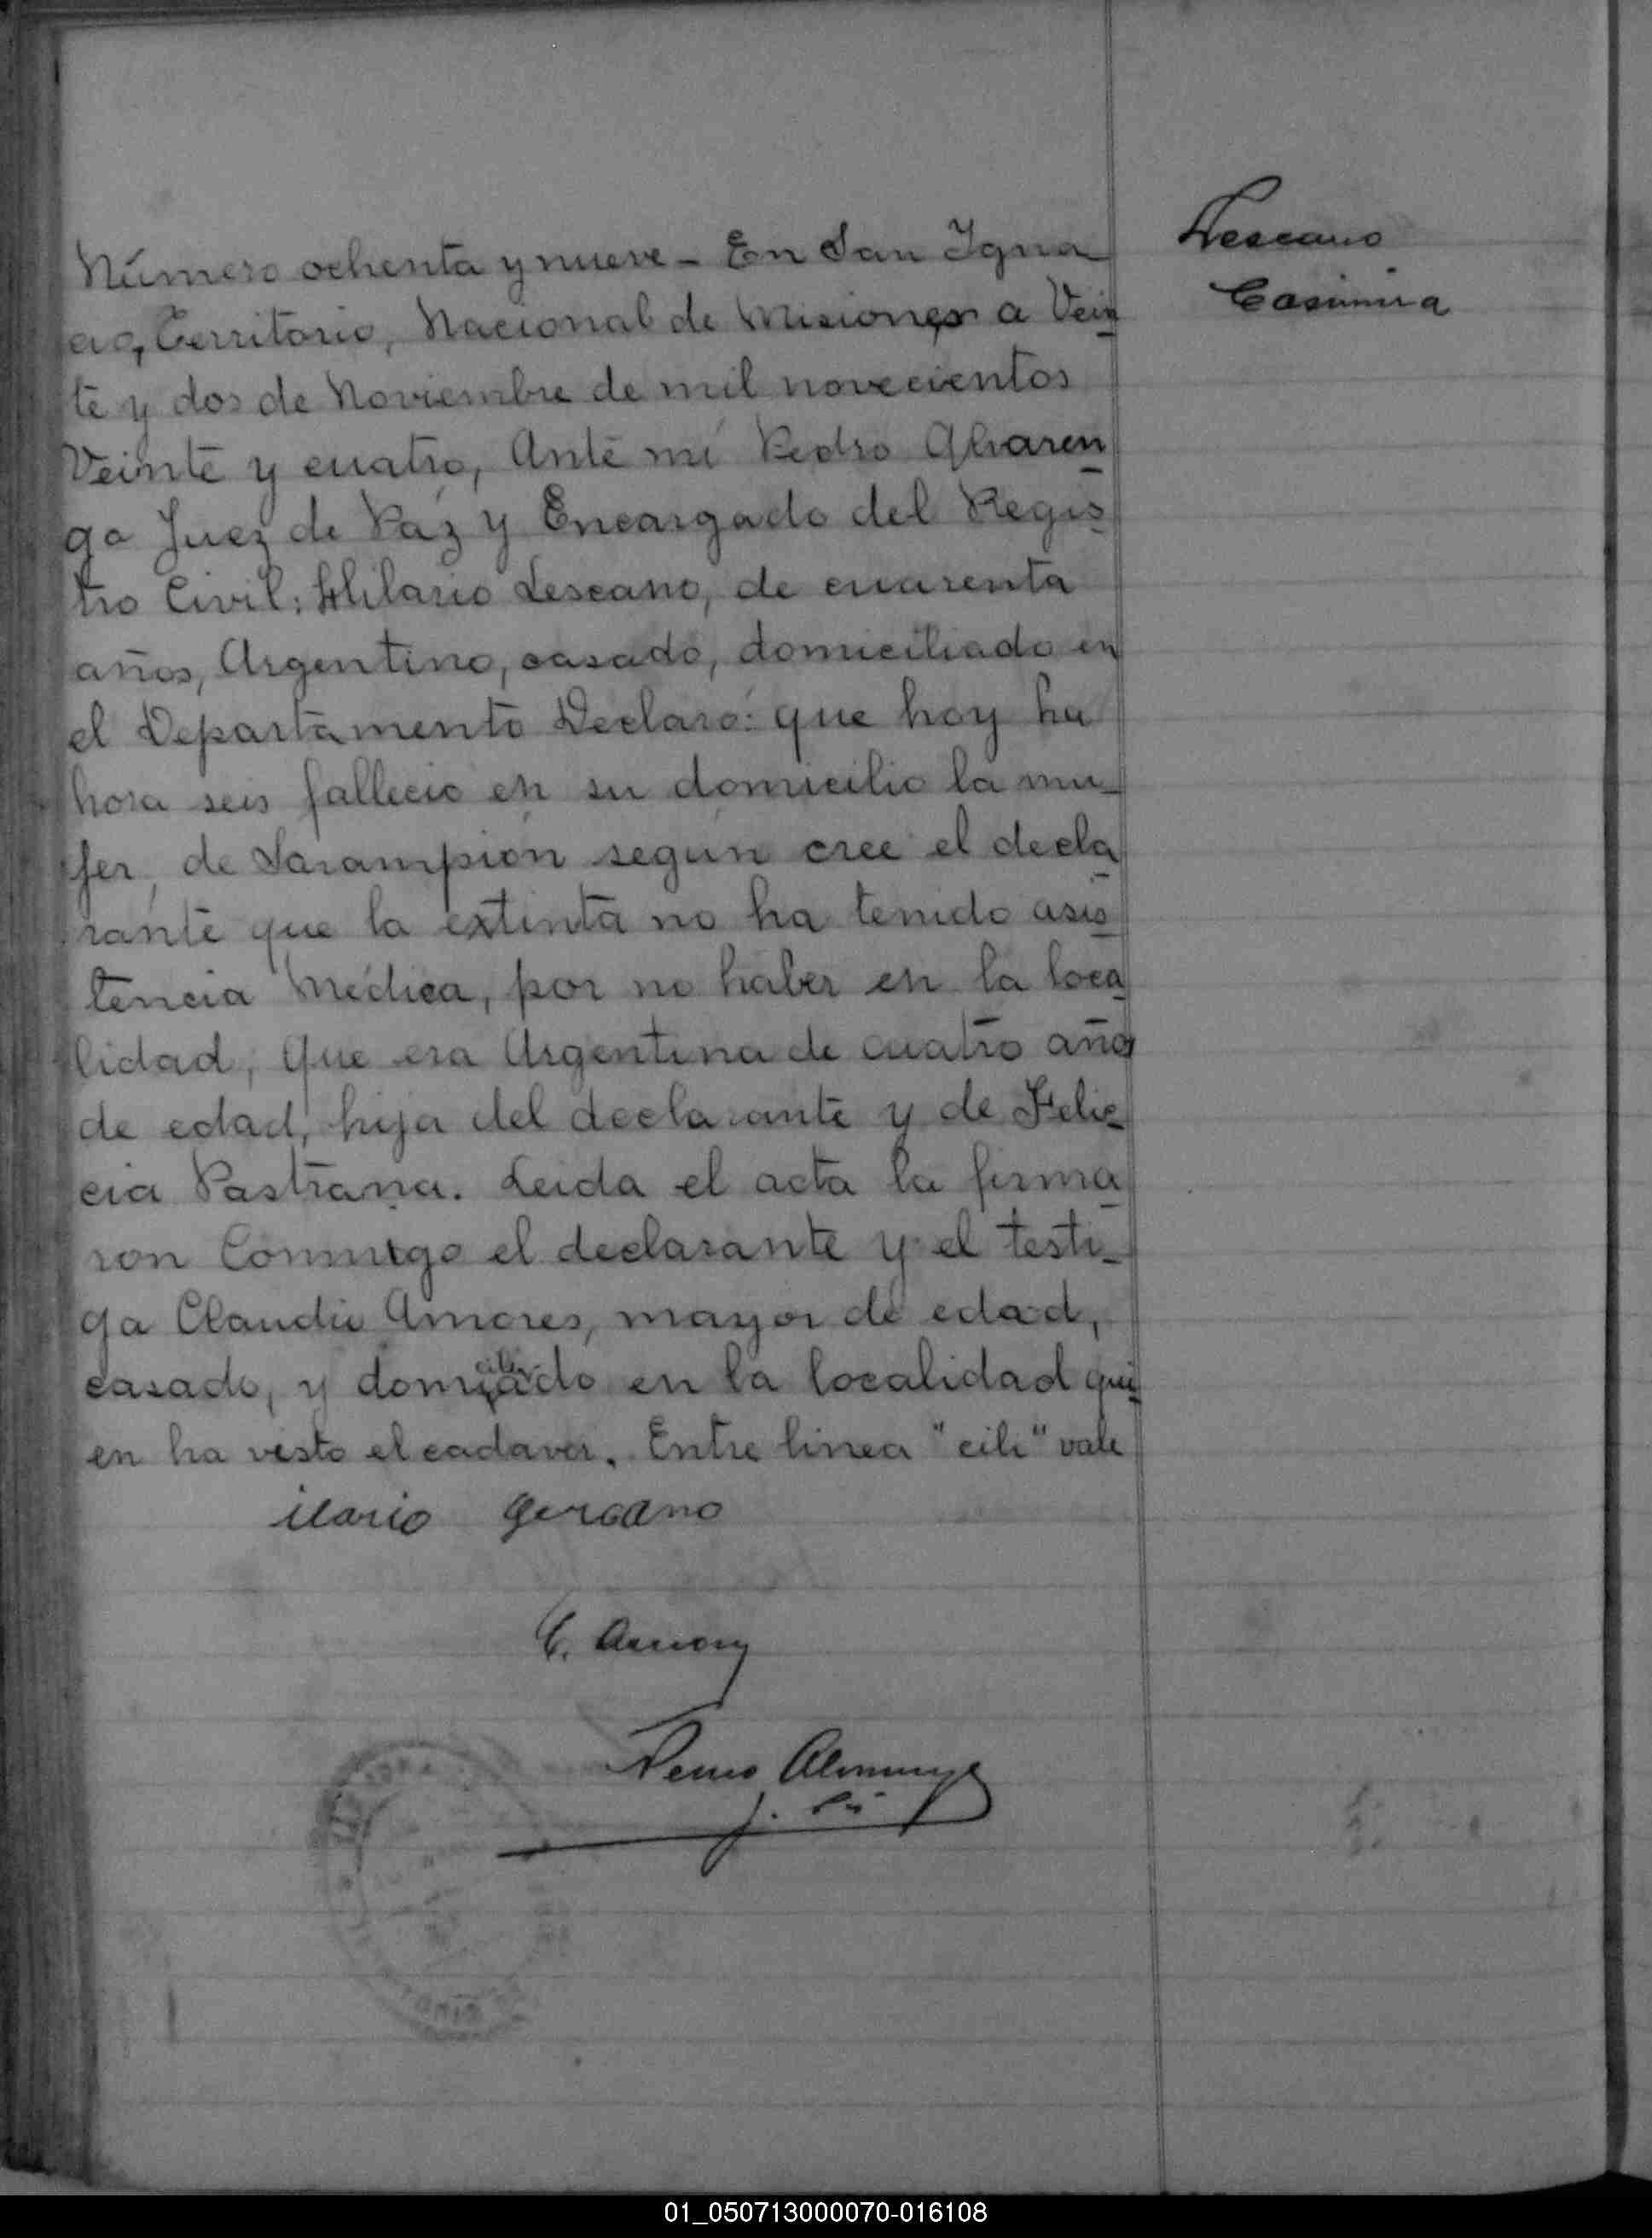 Lescano
Casimira
Número ochenta y nueve - En San Igna
cio, Territorio, Nacional de Misiones a Vein
te y dos de Noviembre de mil novecientos
Veinte y cuatro, Ante mi Pedro Alvaren
ga Juez de Paz y Encargado del Regis
tro Civil: Hilario Lescano, de cuarenta
años, Argentino, casado, domiciliado en
el Departamento Declaró: que hoy ha
hora seis fallecio en su domicilio la mu-
jer, de Sarampión según cree el decla
rante que la extinta no ha tenido asis
tencia Médica, por no haber en la loca
lidad, que era Argentina de cuatro años
de edad, hija del declarante y de Feli-
cia Pastrana. Leida el acta la firma
ron Conmigo el declarante y el testi-
go Claudio Amores, mayor de edad,
casado, y domiciliado en la localidad qui
en ha visto el cadaver. Entre linea "cili" vale
ilario
C. Amores
Pedro Alvarenga
01_050713000070-016108